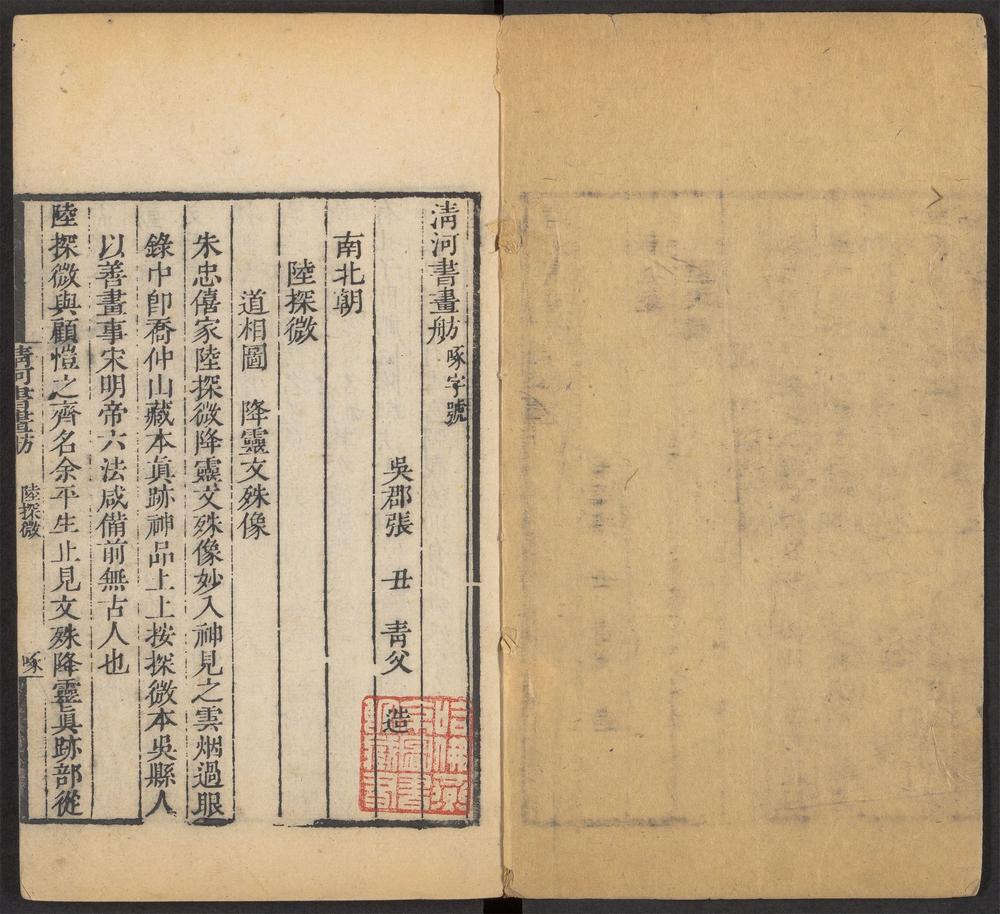 淸河書畫舫 啄字號
吳郡張 丑 靑父 造
南北朝
陸探微
道相圖 降靈文殊像
朱忠僖家陸探微降靈文殊像妙入神見之雲烟過眼
錄中卽喬仲山藏本眞跡神品上上按探微本吳縣人
以善畫事宋明帝六法咸備前無古人也
陸探微與顧愷之齊名余平生止見文殊降靈眞跡部從
淸河書畫舫 陸探微 啄
哈佛燕京圖書館珍藏印